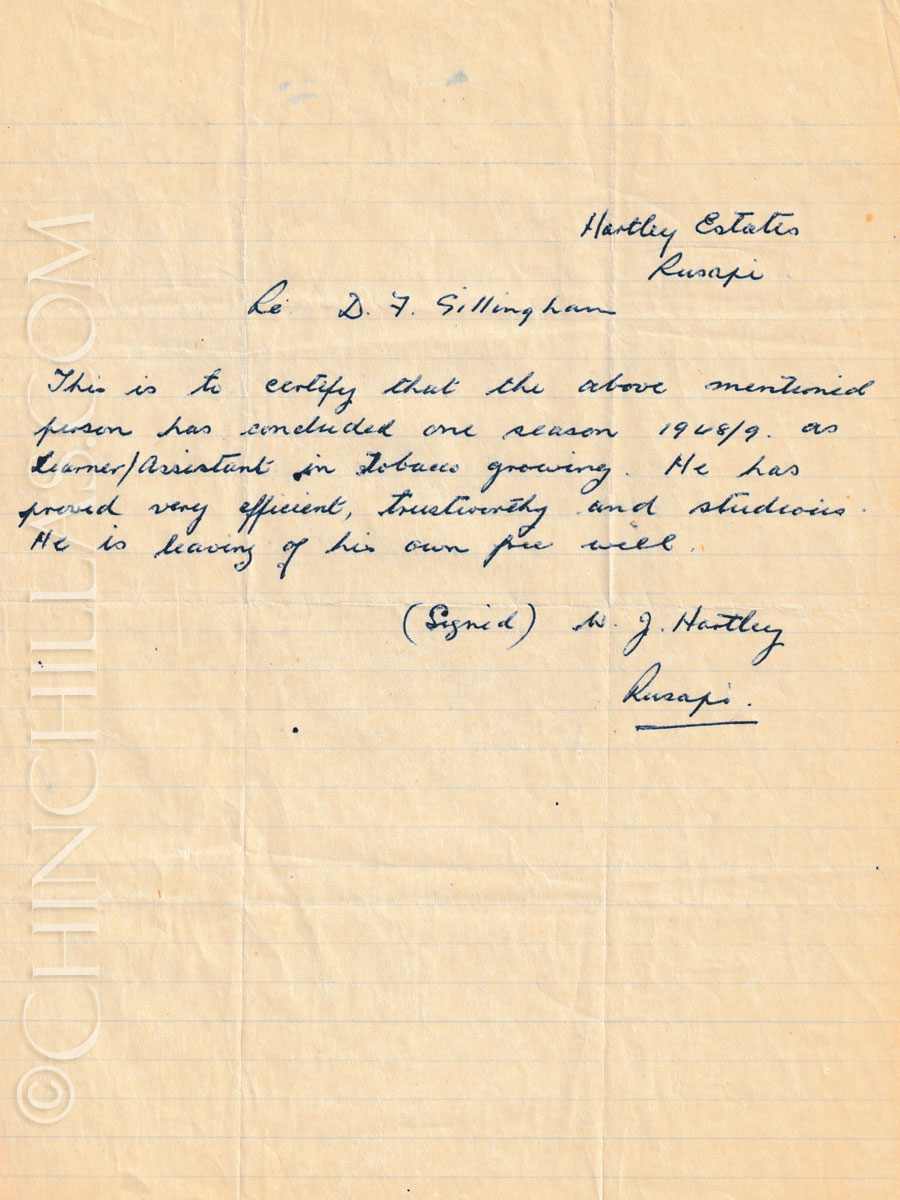 Hartley Estates
Rusapi.
Re D. F. Gillingham
This is to certify that the above mentioned
person has concluded one season 1948/9. as
Learner/Assistant in tobacco growing. He has
proved very efficient, trustworthy and studious.
He is leaving of his own free will.
(Signed) W. J. Hartley
Rusapi.
©CHINCHILLAS.COM